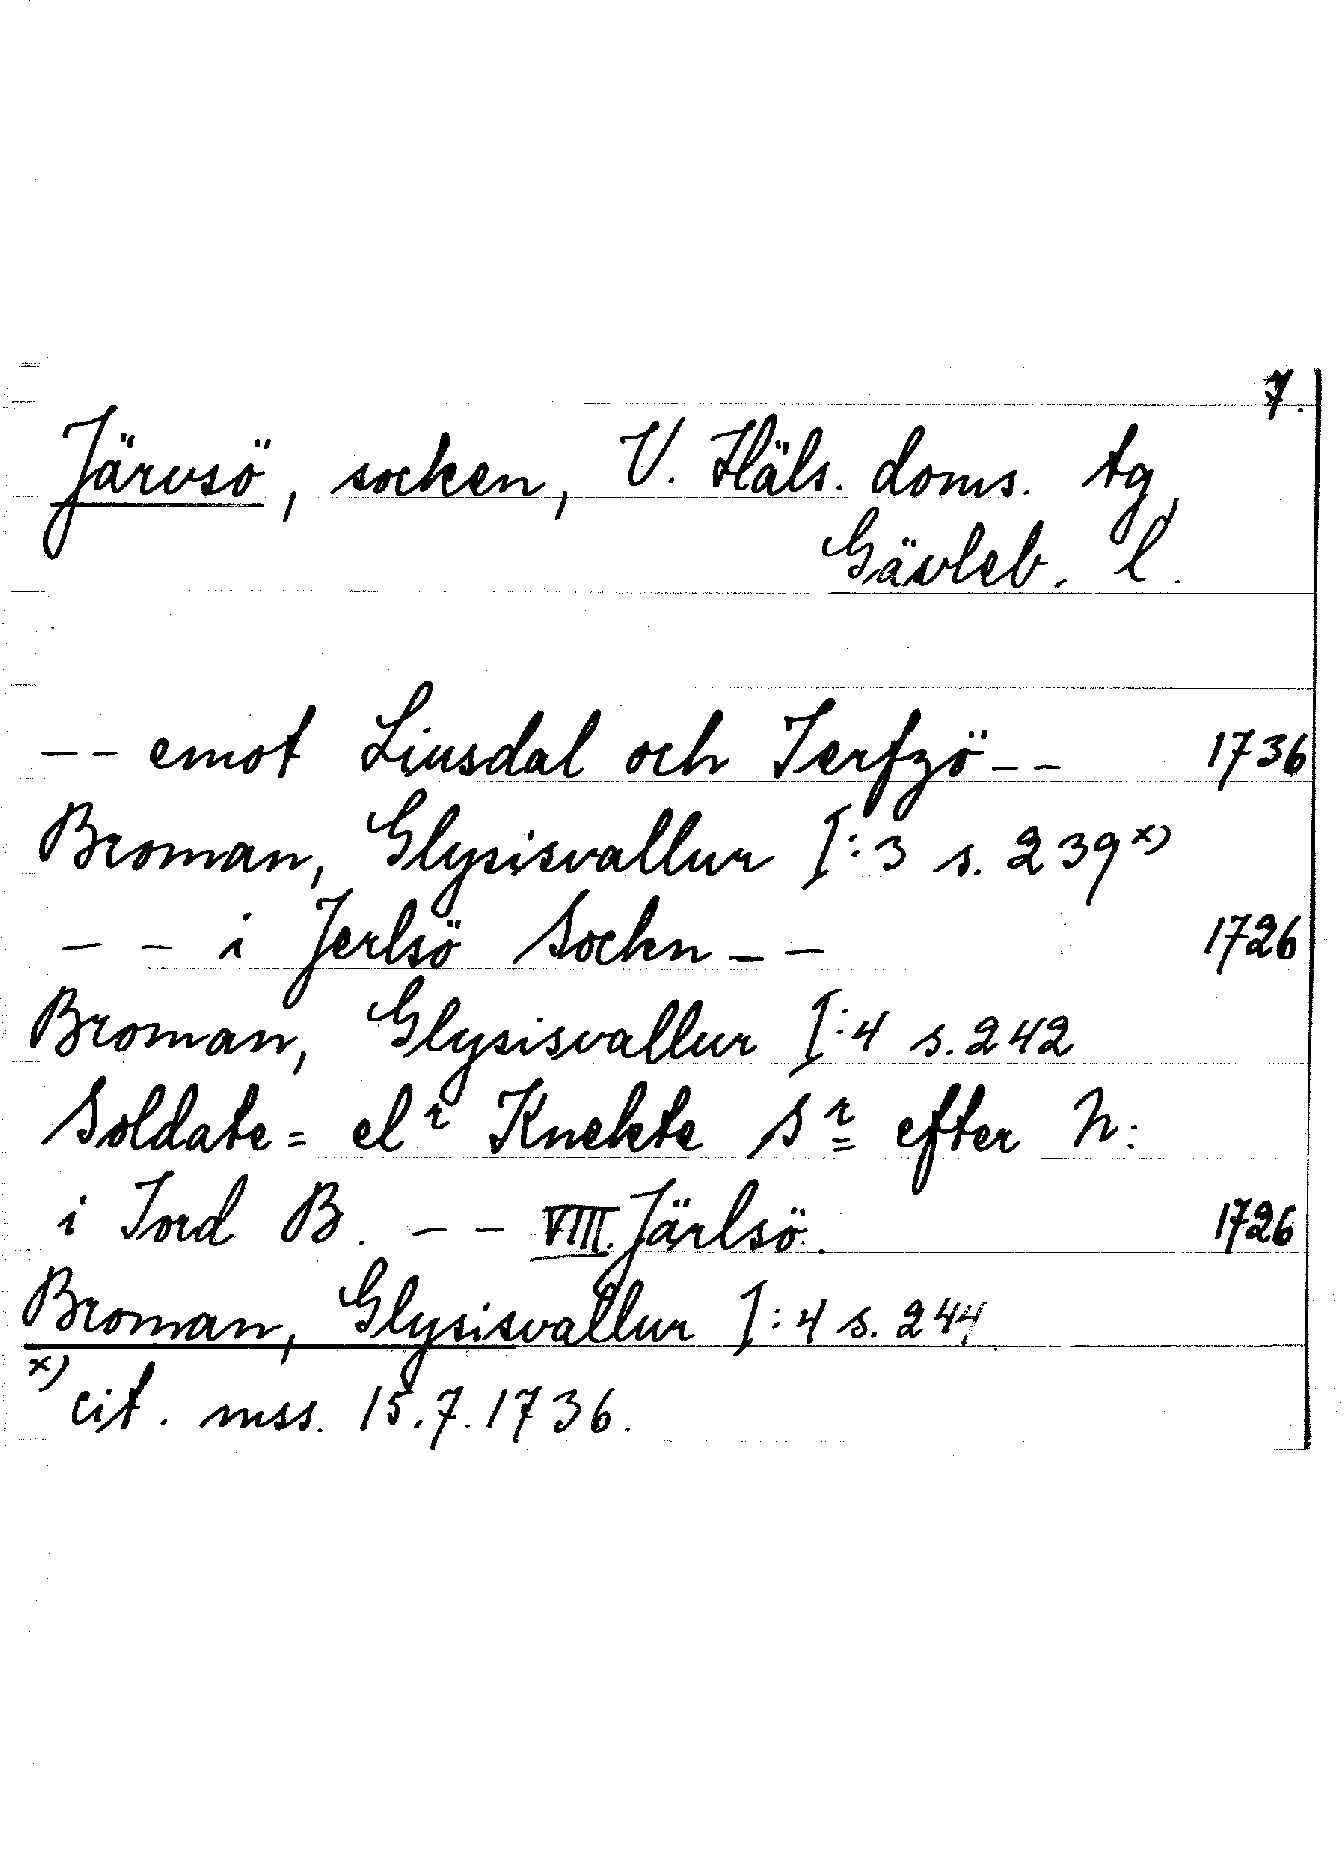 7.
Järvsö, socken, V. Häls. doms. tg,
Gävleb. l.
-- emot Liusdal och Jerfzö -- 1736
Broman, Glysisvallur I:3 s. 239 x)
-- i Jerlsö Sockn -- 1726
Broman, Glysisvallur I:4 s. 242
Soldate= elr Knekte Sr efter N:
i Jord B. -- VIII. Järlsö. 1726
Broman, Glysisvallur I:4 s. 244
x) cit. mss. 15.7.1736.